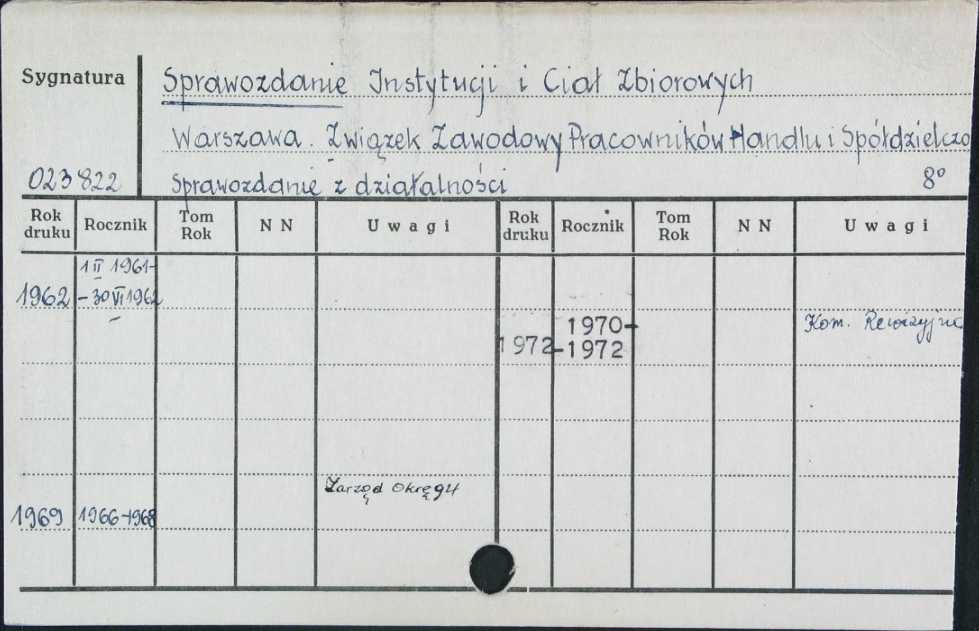 Sygnatura
Sprawozdanie Instytucji i Ciał Zbiorowych
Warszawa. Związek Zawodowy Pracowników Handlu i Spółdzielczo
023822 Sprawozdanie z działalności 8°
Rok druku Rocznik Tom Rok N N Uwagi Rok druku Rocznik Tom Rok N N Uwagi
1 II 1961-
1962 - 30 VI 1962
1970- Kom. Rewizyjna
1972 -1972
Zarząd Okręgu
1969 1966-1968